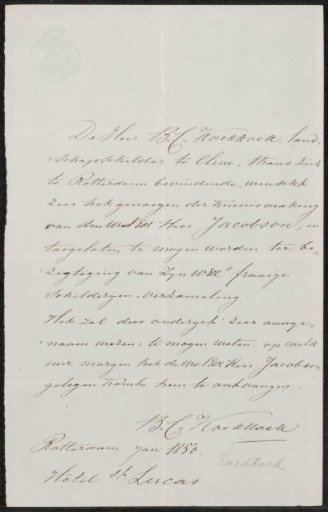 De Heer B.C. Koekkoek, land-
schapschilder te Cleve, thans zich
te Rotterdam bevindende, wenscht
zeer het genoegen der kennismaking
van den WelEd Heer Jacobson, en
toegelaten te mogen worden ter be-
zigtiging van Zyn WEd's fraaije
Schilderijen-Verzameling.
Het zal dus ondergetk: zeer aange-
naam wezen te mogen weten, op welk
uur morgen het de WelEd Heer Jacobson
gelegen komt hem te ontvangen.
B.C. Koekkoek.
Rotterdam 1850.
Koekkoek
Hôtel St. Lucas